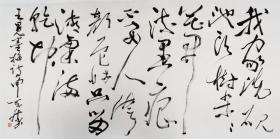 我家洗砚
池头树朵朵
花开
淡墨痕
不要人夸
好颜色只留
清气满
乾坤
王冕墨梅诗